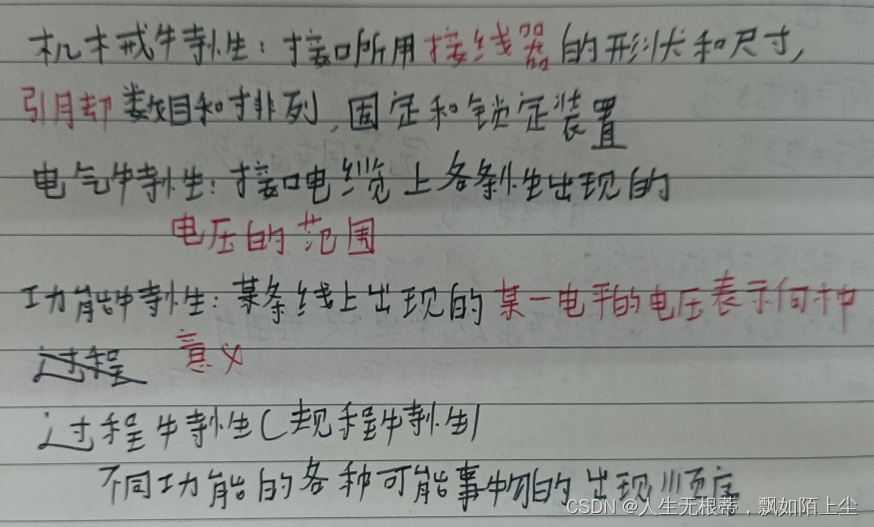 机械特性：接口所用接线器的形状和尺寸,
引脚数目和排列,固定和锁定装置
电气特性：接口电缆上各条线出现的
电压的范围
功能特性：某条线上出现的某一电平的电压表示何种
过程 意义
过程特性(规程特性)
不同功能的各种可能事物的出现顺序
CSDN @人生无根蒂，飘如陌上尘